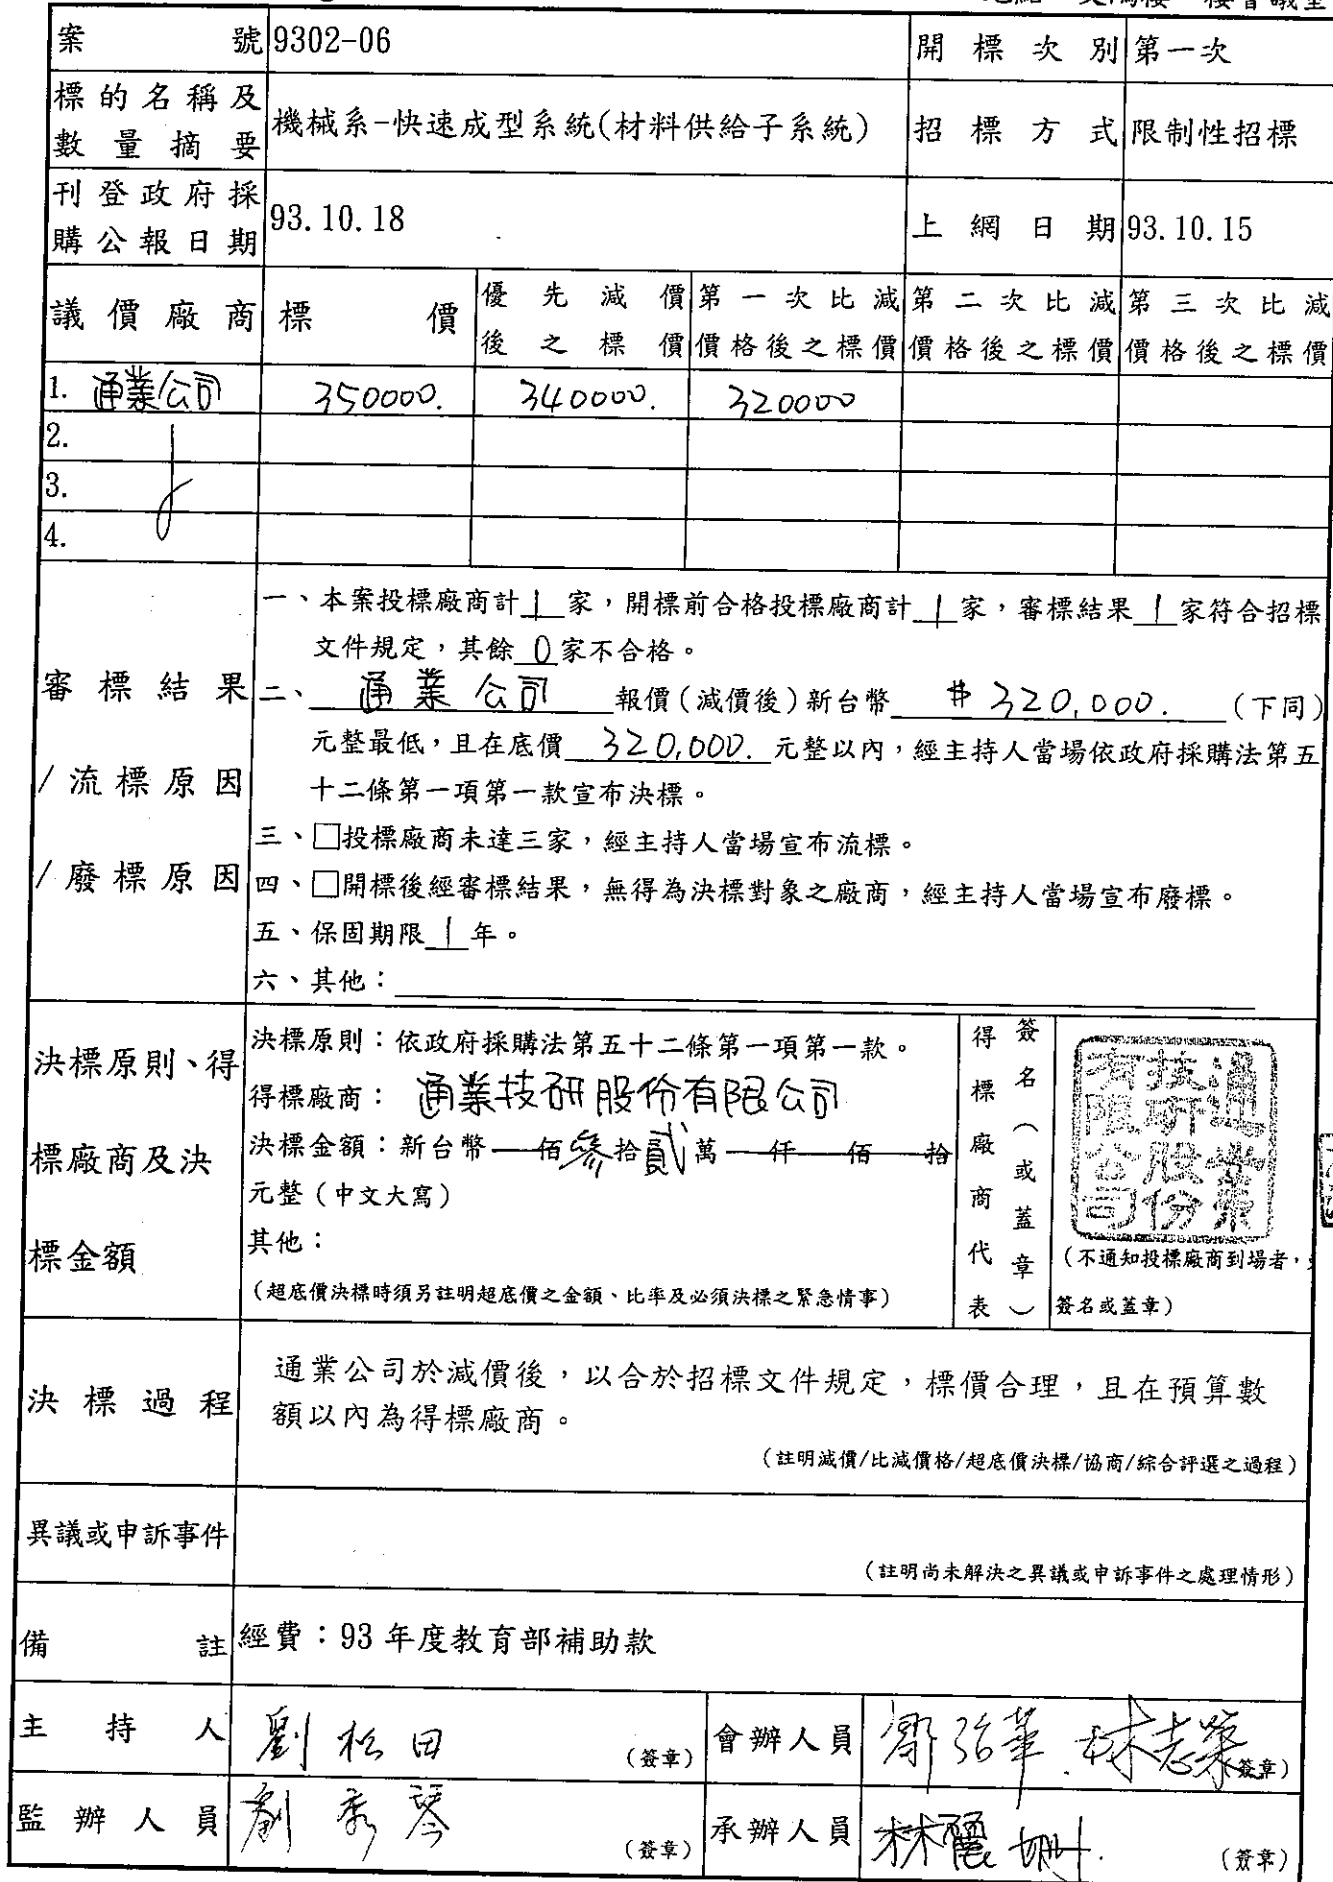 案號 9302-06 開標次別 第一次
標的名稱及數量摘要 機械系-快速成型系統(材料供給子系統) 招標方式 限制性招標
刊登政府採購公報日期 93.10.18 上網日期 93.10.15
議價廠商 標價 優先減價後之標價 第一次比減價格後之標價 第二次比減價格後之標價 第三次比減價格後之標價
1. 通業公司 350000. 340000. 320000
2.
3.
4.
審標結果
/流標原因
/廢標原因
一、本案投標廠商計1家,開標前合格投標廠商計1家,審標結果1家符合招標
文件規定,其餘0家不合格。
二、通業公司 報價(減價後)新台幣 $320,000. (下同)
元整最低,且在底價320,000.元整以內,經主持人當場依政府採購法第五
十二條第一項第一款宣布決標。
三、□投標廠商未達三家,經主持人當場宣布流標。
四、□開標後經審標結果,無得為決標對象之廠商,經主持人當場宣布廢標。
五、保固期限1年。
六、其他:
決標原則、得
標廠商及決
標金額
決標原則:依政府採購法第五十二條第一項第一款。
得標廠商:通業技研股份有限公司
決標金額:新台幣 佰參拾貳萬 仟 佰 拾
元整(中文大寫)
其他:
(超底價決標時須另註明超底價之金額、比率及必須決標之緊急情事)
得標廠商代表
簽名(或蓋章)
通業
技研股份
有限公司
(不通知投標廠商到場者,
簽名或蓋章)
決標過程
通業公司於減價後,以合於招標文件規定,標價合理,且在預算數
額以內為得標廠商。
(註明減價/比減價格/超底價決標/協商/綜合評選之過程)
異議或申訴事件
(註明尚未解決之異議或申訴事件之處理情形)
備註 經費:93 年度教育部補助款
主持人 劉松田 (簽章) 會辦人員 林志 簽章)
監辦人員 劉秀琴 (簽章) 承辦人員 林麗姍. (簽章)